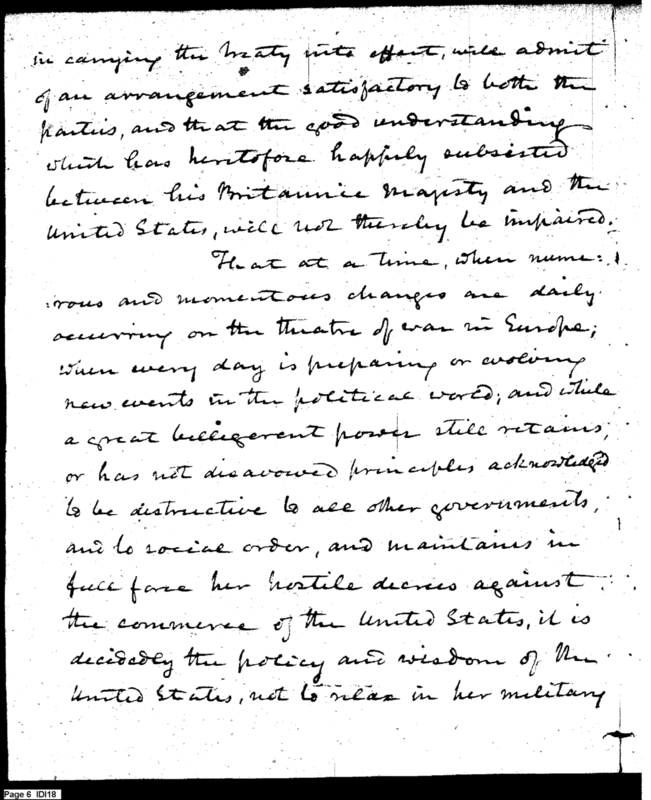 in carrying the treaty into effect, will admit
of an arrangement satisfactory to both the
parties, and that the good understanding
which has heretofore happily subsisted
between his Britannic Majesty and the
United States, will not thereby be impaired.
That at a time, when nume:
:rous and momentous changes are daily
occurring on the theatre of war in Europe;
when every day is preparing or evolving
new events in the political world; and while
a great belligerent power still retains,
or has not disavowed principles acknowledged
to be destructive to all other governments,
and to social order, and maintains in
full force her hostile decrees against
the commerce of the United States, it is
decidedly the policy and wisdom of the
United States, not to relax in her military
Page 6 IDI18